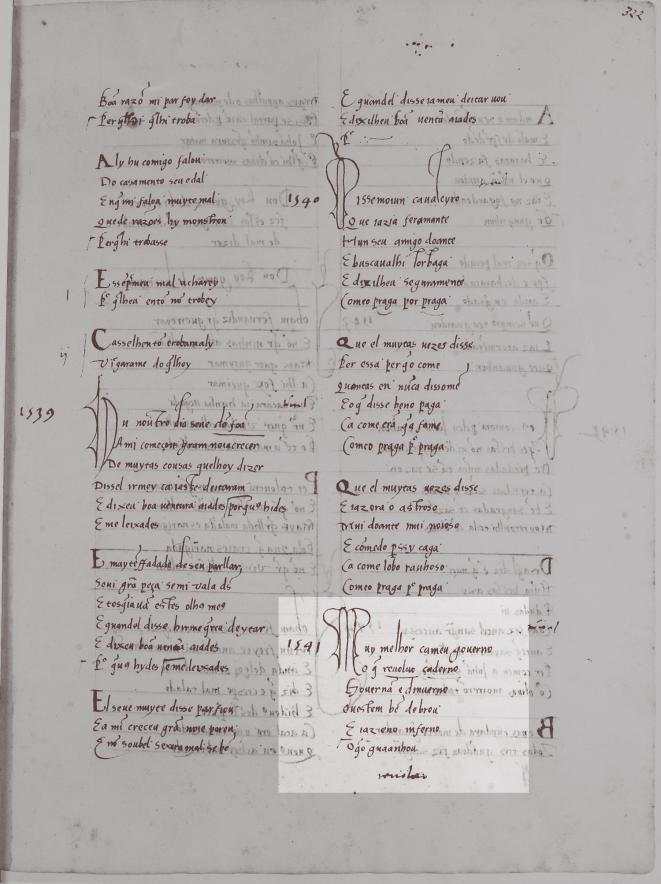 322
Boā razō mi par foy dar
Per qlhi trobar
Aly hu comigo falou
Do casamento seu edal
En q̄ mi falou muyto mal
Quede razoēs hy monstrou
Per q̄lhi trobasse
E ssep̄meu mal uchardo
P̄o q̄lhea entō nō trobey
ij
Casselhentō trobaraaly
Vīgarame do q̄lhoy
1539
Hu noūtro dia seue dō foā
A mi começou gram noiacrecer
De muytas cousas quelhoy dizer
Dissel irmey cajasse deitaram
E dixeu boa uentura aiades porque hides
E me leixades
E mayteffadado deseu parllar
Soui grā peça semi ual ds
E tosqiauā estes olhos meq
E quandel disse hirmequeu deytar
E dixeu boā uenturā aiades
P̄o que hydes e me leixades
El seue muyto e disse parfiou
E a mi creceu grā noie poren
E nō soubel sexera mal se bē
E quandel disse iameu deitar uou
E dixilheu boā uentā aiades
P̄o
1540
Dissemoiun caualeyro
Que iazia feramante
Hun seu amigo doante
E buscaualhi lorbaga
E dixilheu seguramente
Comeo praga por praga
Que el muytas uezes disse
Per essa per q̄o come
Quantas en nūca dissome
E o q̄ disse beno paga
Ca come cā q̄a fame
Comeo praga p̄ praga
Que el muytas uezes disse
E iazora o astroso
Mui doante mui noioso
E cōmedo pssy caga
Ca come lobo rauhoso
Comeo praga p̄ praga
1541
Muy melhor cameu gouerno
O q̄ reuolue caderno
Gouerna e dinuerno
Ouestem bē de brou
E iazeno inferno
O q̄o guaanhou